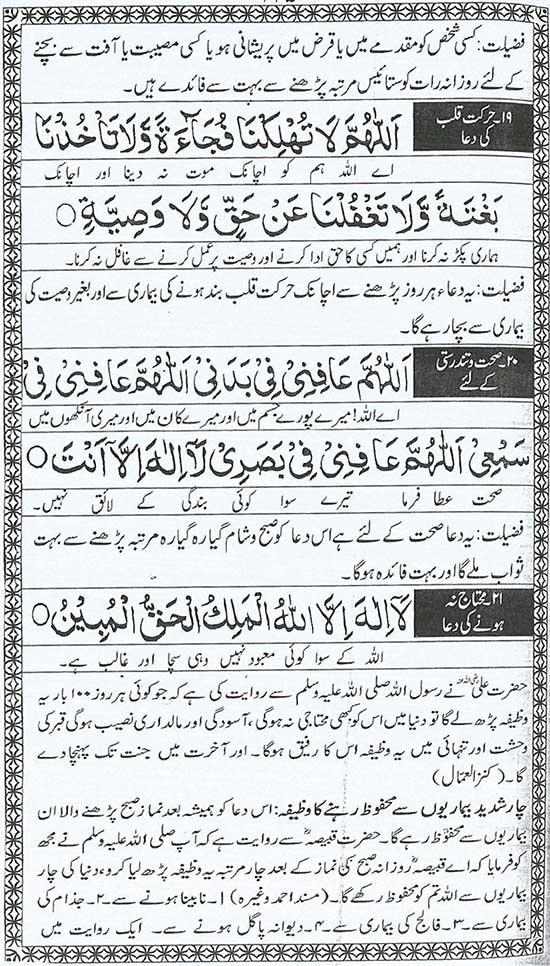 فضیلت: کسی شخص کو مقدمے میں یا قرض میں پریشانی ہو یا کسی مصیبت یا آفت سے بچنے
کے لئے روزانہ رات کو ستائیس مرتبہ پڑھنے سے بہت سے فائدے ہیں۔
۱۹۔ حرکت قلب
کی دعا
اَللّٰهُمَّ لَا تُهْلِكْنَا فُجَاءَةً وَّلَا تَأْخُذْنَا
اے اللہ ہم کو اچانک موت نہ دینا اور اچانک
بَغْتَةً وَّلَا تَغْفُلْنَا عَنْ حَقٍّ وَلَا وَصِيَّةٍ ○
ہماری پکڑ نہ کرنا اور ہمیں کسی کا حق ادا کرنے اور وصیت پر عمل کرنے سے غافل نہ کرنا۔
فضیلت: یہ دعاء ہر روز پڑھنے سے اچانک حرکت قلب بند ہونے کی بیماری سے اور بغیر وصیت کی
بیماری سے بچا رہے گا۔
۲۰۔ صحت و تندرستی
کے لئے
اَللّٰهُمَّ عَافِنِيْ فِيْ بَدَنِيْ اَللّٰهُمَّ عَافِنِيْ فِيْ
اے اللہ! میرے پورے جسم میں اور میرے کان میں اور میری آنکھوں میں
سَمْعِيْ اَللّٰهُمَّ عَافِنِيْ فِيْ بَصَرِيْ لَآ اِلٰهَ اِلَّا اَنْتَ ○
صحت عطا فرما تیرے سوا کوئی بندگی کے لائق نہیں۔
فضیلت: یہ دعا صحت کے لئے ہے اس دعا کو صبح و شام گیارہ گیارہ مرتبہ پڑھنے سے بہت
ثواب ملے گا اور بہت فائدہ ہوگا۔
۲۱۔ محتاج نہ
ہونے کی دعا
لَآ اِلٰهَ اِلَّا اللّٰهُ الْمَلِكُ الْحَقُّ الْمُبِيْنُ ○
اللہ کے سوا کوئی معبود نہیں وہی سچا اور غالب ہے۔
حضرت علیؓ نے رسول اللہ صلی اللہ علیہ وسلم سے روایت کی ہے کہ جو کوئی ہر روز ۱۰۰ بار یہ
وظیفہ پڑھ لے گا تو دنیا میں اس کو کبھی محتاجی نہ ہوگی، آسودگی اور مالداری نصیب ہوگی قبر کی
وحشت اور تنہائی میں یہ وظیفہ اس کا رفیق ہوگا۔ اور آخرت میں جنت تک پہنچا دے
گا۔ (کنز العمال)
چار شدید بیماریوں سے محفوظ رہنے کا وظیفہ: اس دعا کو ہمیشہ بعد نماز صبح پڑھنے والا ان
بیماریوں سے محفوظ رہے گا۔ حضرت قبیصہؓ سے روایت ہے کہ آپ صلی اللہ علیہ وسلم نے مجھ
کو فرمایا کہ اے قبیصہؓ روزانہ صبح کی نماز کے بعد چار مرتبہ یہ وظیفہ پڑھ لیا کرو، دنیا کی چار
بیماریوں سے اللہ تم کو محفوظ رکھے گا۔ (مسند احمد وغیرہ) ۱۔ نابینا ہونے سے ۔۲۔ جذام کی
بیماری سے ۔۳۔ فالج کی بیماری سے ۔۴۔ دیوانہ پاگل ہونے سے۔ ایک روایت میں